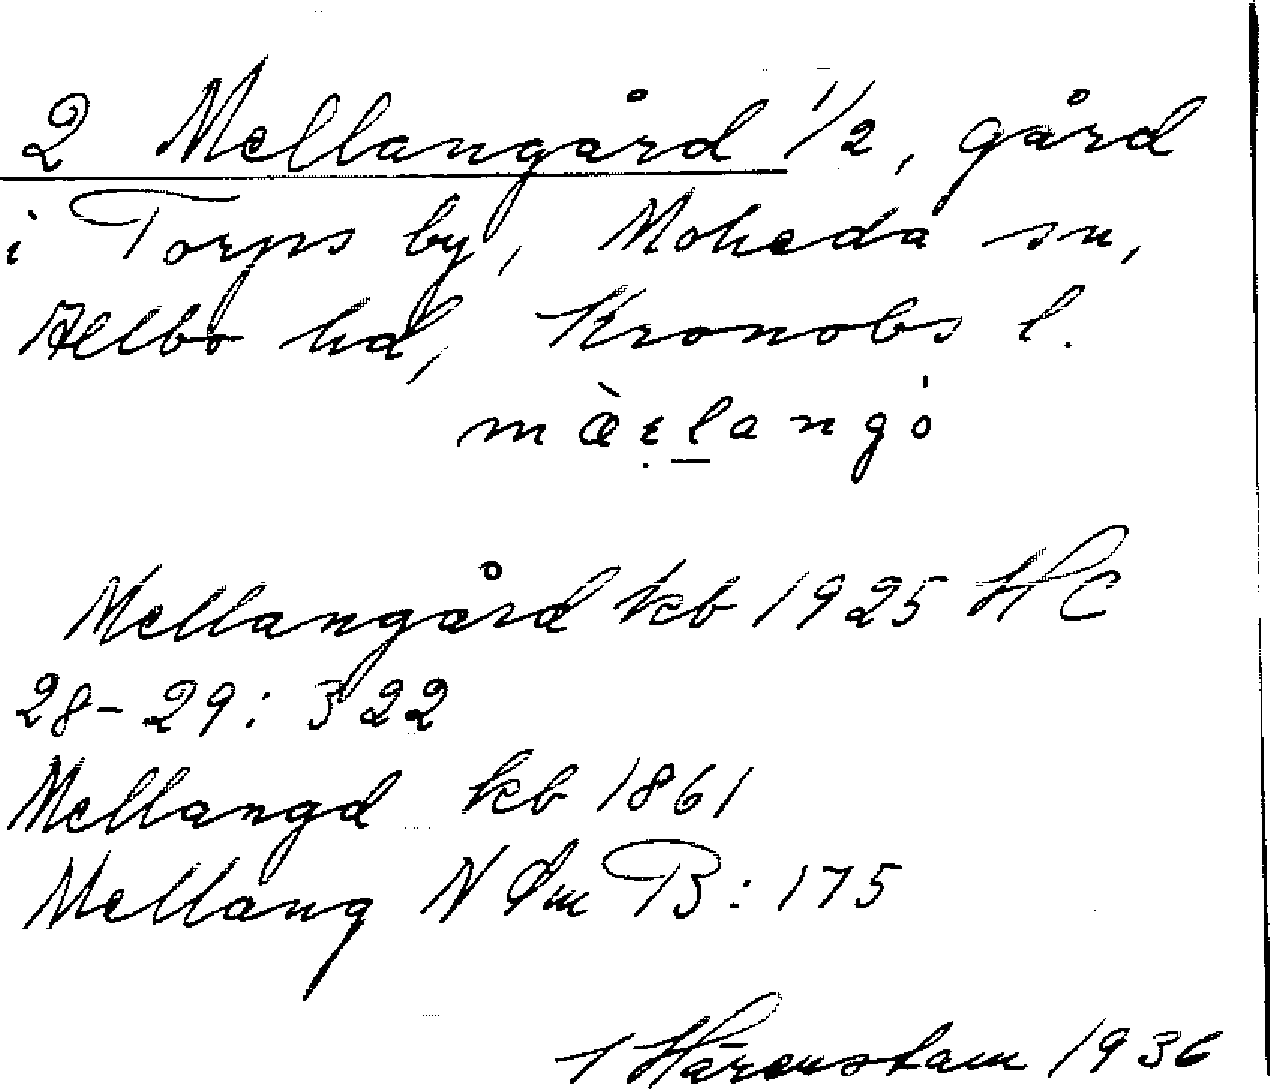 2 Mellangård 1/2, gård
i Torps by, Moheda sn,
Allbo hd, Kronobs l.
mæ̀ɛlangȯ
Mellangård kb 1925 HC
28-29: 322
Mellangd kb 1861
Mellang N Öm B: 175
Härenstam 1936